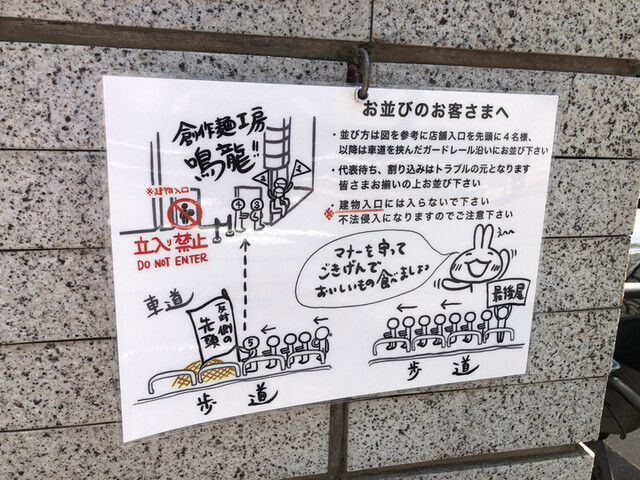 お並びのお客さまへ
・並び方は図を参考に店舗入口を先頭に4名様、
以降は車道を挟んだガードレール沿いにお並び下さい
・代表待ち、割り込みはトラブルの元となります
皆さまお揃いの上お並び下さい
・建物入口には入らないで下さい
※不法侵入になりますのでご注意下さい
創作麺工房
鳴龍!!
※建物入口
立入り禁止
DO NOT ENTER
マナーを守って
ごきげんで
おいしいもの食べましょう
最後尾
車道
反対側の
先頭
5
歩道
歩道